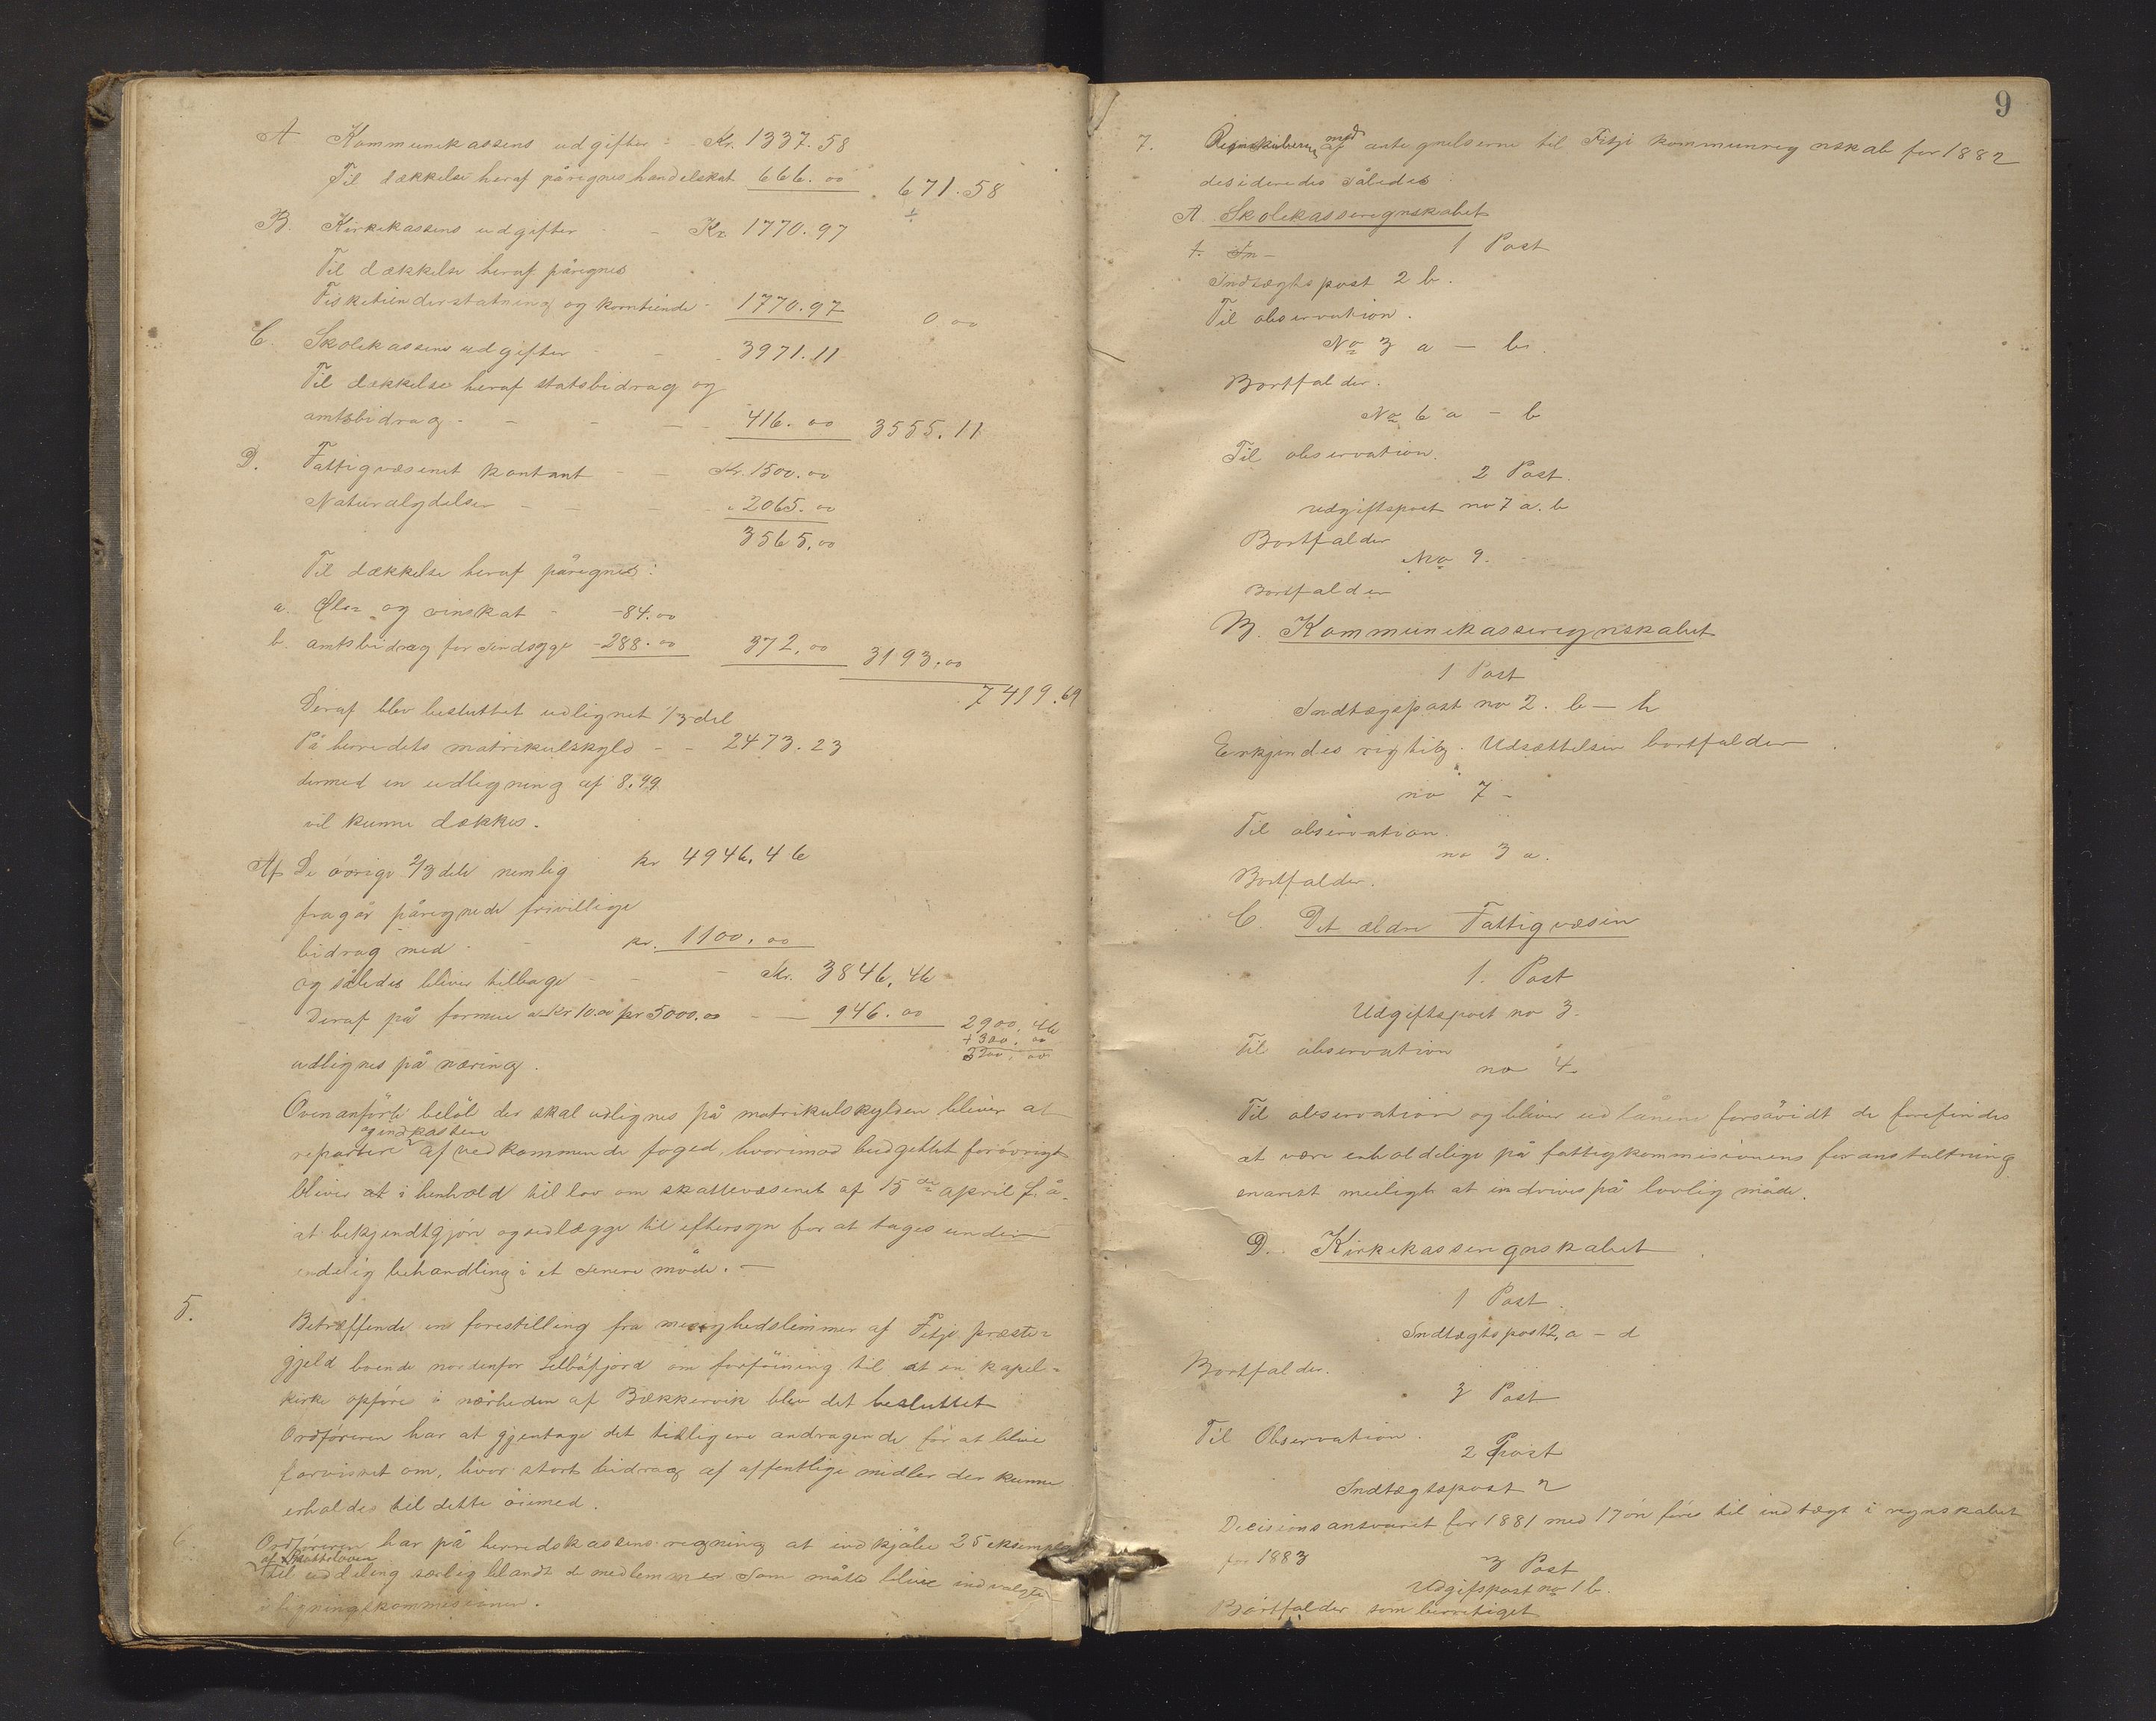 A Kommunekassens udgifter - Kr. 1337.58
Til dækkelse heraf påregnes handelskat 666.00 671.58
B. Kirkekassens udgifter - Kr 1770.97
Til dækkelse heraf påregnes
Fisketienderstatning og korntiende - 1770.97 0.00
C. Skolekassens udgifter - - 3971.11
Til dækkelse heraf statsbidrag og
amtsbidrag - - - - 416.00 3555.11
D. Fattigvæsenet kontant - - Kr. 1500.00
Naturalydelser - - - - 2065.00
3565.00
Til dækkelse heraf påregnes:
a. Øl og vinskat - -84.00
b. amtsbidrag for sindsyge -288.00 372.00 3193.00
7419.69
Deraf blev besluttet udlignet 1/3 del
På herredets matrikulskyld - - 2473.23
dermed en udlegning af 8.49
vil kunne dækkes.
Af De øvrige 2/3 dele nemlig kr 4946.46
fragår påregnede frivillige
bidrag med - - kr. 1100.00
og således bliver tilbage - - - Kr. 3846,46
Deraf på formue a Kr 10.00 pr 5000.00 - - 946.00 2900,46
+300.00
3200,00
udlignes på næring.
Ovenanførte beløb der skal udlignes på matrikulskylden bliver at
og indkassere
repartere af vedkommende foged, hvorimod budgettet forøvrigt
bliver at i henhold til lov om skattevæsenet af 15de april f. å.
at bekjendtgjøre og udlægge til eftersyn for at tages under
endelig behandling i et senere møde. -
5. Betræffende en forestilling fra menighedslemmer af Fitje præste-
gjeld boende nordenfor Selbøfjord om forføining til at en kapel-
kirke opføre i nærheden af Bækkervik blev det besluttet
Ordføreren har at gjentage det tidligere andragende for at blive
forvisset om, hvor stort bidrag af offentlige midler der kunne
erholdes til dette øiemed.
6. Ordføreren har på herredskassens regning at indkjøbe 25 eksempl
af Skatteloven
til uddeling særlig blandt de medlemmer som måtte blive indvalgte
i ligningskommisionen.
9
7. med
af antegnelserne til Fitje kommuneregnskab for 1882
desideredes således
A Skolekasseregnskabet
1. In - 1 Post
Indtægts post 2 b.
Til observation.
No 3 a - b.
Bortfalder.
No 6 a - b
Til observation.
2 Post.
udgiftspost no 7 a. b
Bortfalder
No 9.
Bortfalder
B. Kommunekasseregnskabet
1 Post
Indtægspost no 2. b - h
Erkjendes rigtig. Udsættelsen bortfalder.
no 7 -
Til observation.
no 3 a.
Bortfalder.
C. Det ældre Fattigvæsen
1. Post
Udgiftspost no 3.
Til observation
no 4
Til observation og bliver udlånene forsåvidt de forefindes
at være erholdelige på fattigkommisionens foranstaltning
snarest muligt at inddrives på lovlig måde.
D. Kirkekasseregnskabet
1 Post.
Indtægts post 2, a - d
Bortfalder.
3 Post
Til Observation.
2 Post
Indtægtspost 2
Decisionsansvaret for 1881 med 17 øre føres til indtægt i regnskabet
for 1883
3 Post
Udgiftspost no 1 b.
Bortfalder som berettiget